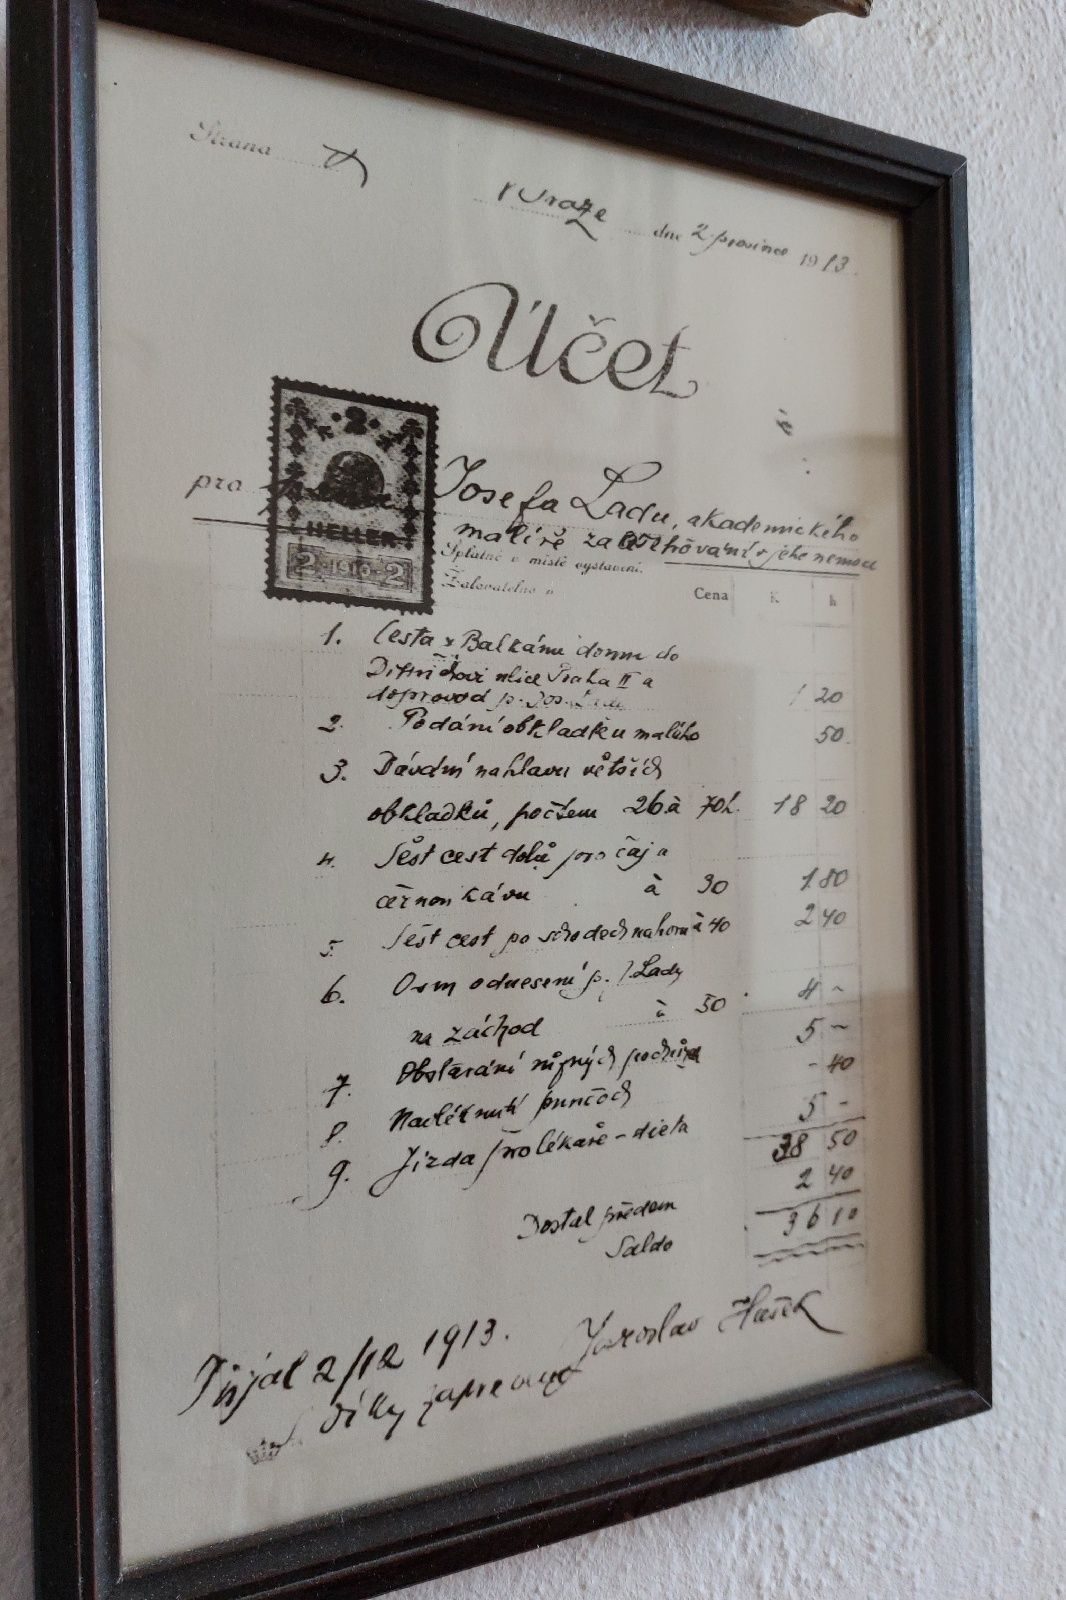 Strana
V Praze dne 2 prosince 1913
Účet
2
HELLER
2 1910 2
pro Josefa Ladu, akademického
malíře za ošetřování v jeho nemoci
Splatné v místě vystavení.
Žalovatelno v
Cena K h
1. Cesta z Balkánu domu do
Dittrichovi ulice Praha II a
doprovod p. Jos. Lady 1 20
2. Podání obkladku malého 50
3. Dávání na hlavu větších
obkladků, počtem 26 à 70 h. 18 20
4. Šest cest dolů pro čaj a
černou kávu à 30 1 80
5. Šest cest po schodech nahoru à 40 2 40
6. Osm odnesení p. J. Lady
na záchod à 50 4 -
7. Obstarání různých pochůzek 5 -
8. Navléknutí punčoch - 40
9. Jízda pro lékaře - dieta 5 -
38 50
Dostal předem 2 40
Saldo 36 10
Přijal 2/12 1913. Jaroslav Hašek
S díky zapraveno